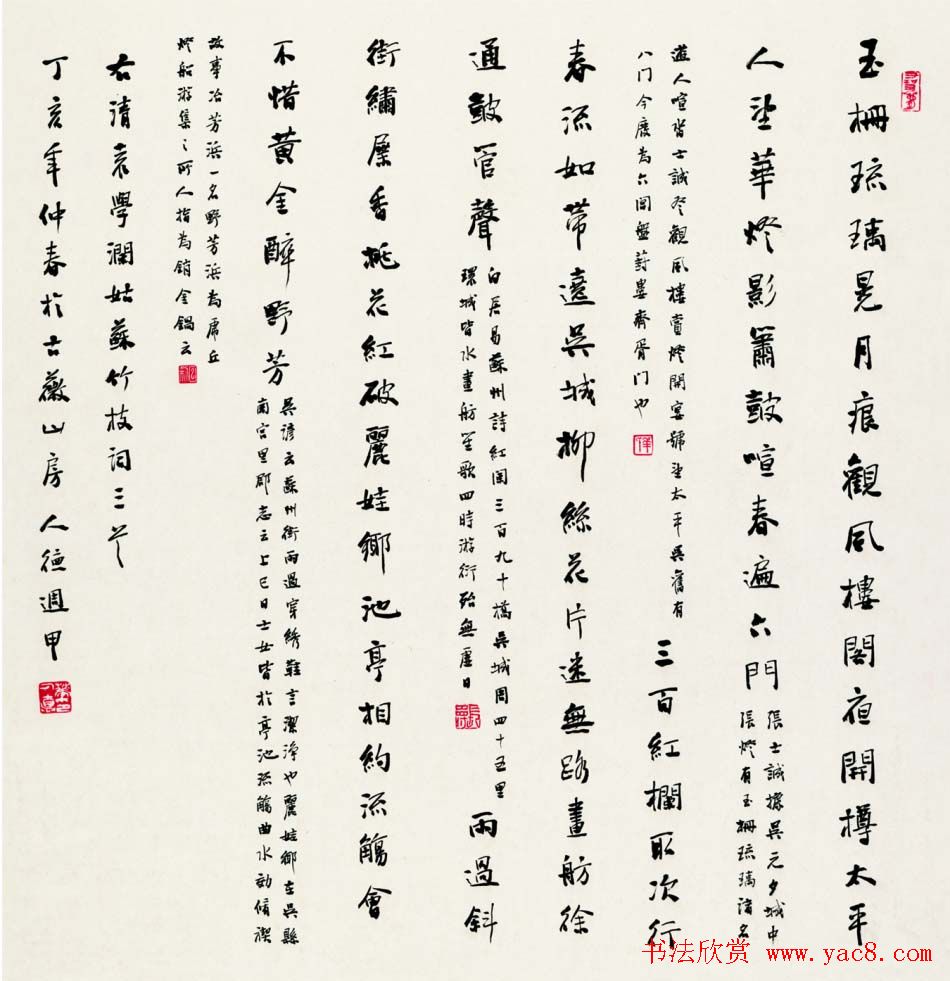 玉柵琉璃晃月痕觀風樓閣夜開樽太平
人望華燈影簫鼓喧春遍六門
張士誠據吳元夕城中
張燈有玉柵琉璃諸名
遊人喧沓士誠登觀風樓賞燈開宴號望太平吳舊有
八門今廢為六閶盤葑婁齊胥門也
三百紅欄取次行
春流如帶遶吳城柳絲花片迷無路畫舫徐
通鼓管聲
白居易蘇州詩紅闌三百九十橋吳城周四十五里
環城皆水畫舫笙歌四時游衍殆無虛日
雨過斜
街繡屧香桃花紅破麗娃鄉池亭相約流觴會
不惜黃金醉野芳
吳諺云蘇州街雨過穿綉鞋言潔淨也麗娃鄉在吳縣
南宮里郡志云上巳日士女皆於亭池流觴曲水効脩禊
故事冶芳浜一名野芳浜為虎丘
燈船游集之所人指為銷金鍋云
右清袁學瀾姑蘇竹枝詞三首
丁亥年仲春於古薇山房人德週甲
书法欣赏 www.yac8.com